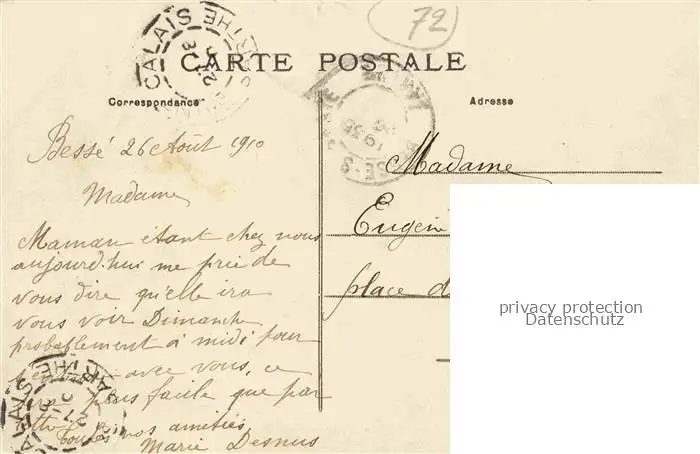 72
CALAIS
SARTHE
CARTE POSTALE
Correspondance
Adresse
Bessé 26 Août 1910
Madame
Maman étant chez nous
aujourd'hui me prie de
vous dire qu'elle ira
vous voir Dimanche
probablement à midi pour
avec vous, ce
plus facile que par
toutes nos amitiés
Marie Desnus
Madame
Eugéni
place d
privacy protection
Datenschutz
CALAIS
SARTHE
27-8